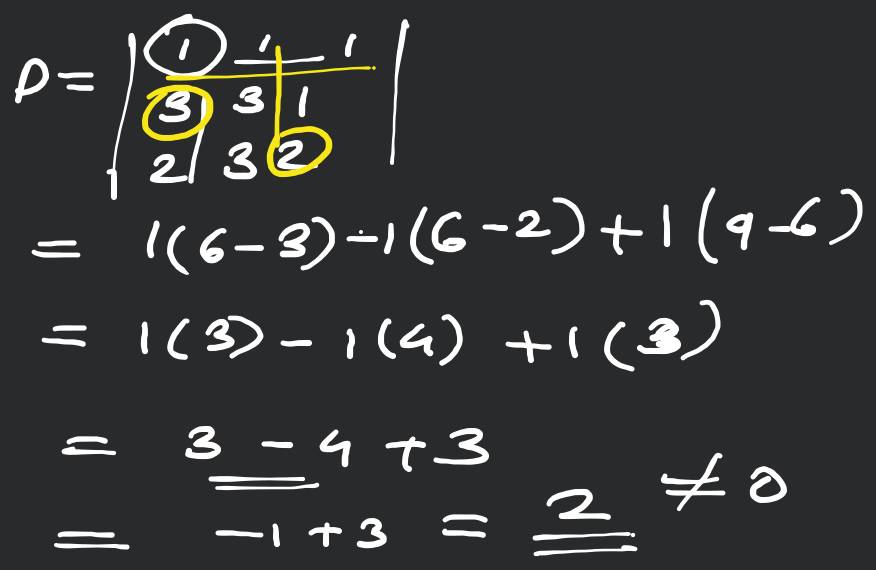 D = | 1 1 1 |
| 3 3 1 |
| 2 3 2 |
= 1(6-3)-1(6-2)+1(9-6)
= 1(3)-1(4)+1(3)
= 3-4+3
= -1+3 = 2 ≠0